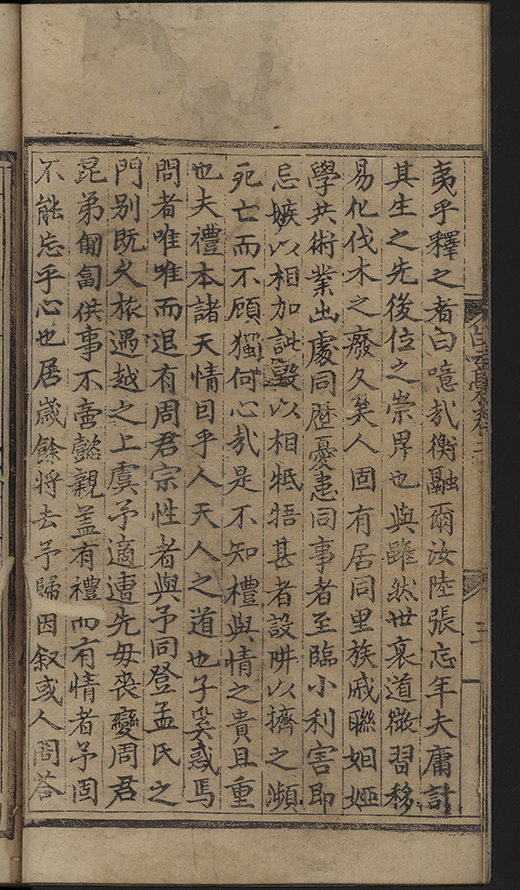 夷乎釋之者曰噫㦲衡融爾汝陸張忘年夫庸計
其生之先後位之崇畀也與雖然世衰道微習移
易化伐木之廢久矣人固有居同里族戚聯姻婭
學共術業出處同歷憂患同事者至臨小利害即
忌嫉以相加訿毀以相牴牾甚者設阱以擠之瀕
死亡而不顧獨何心㦲是不知禮與情之貴且重
也夫禮本諸天情囙乎人天人之道也子奚惑焉
問者唯唯而退有周君宗性者與予同登孟氏之
門别既久旅遇越之上虞予適遭先母喪變周君
昆弟匍匐供事不啻懿親盖有禮而有情者予固
不能忘乎心也居嵗餘将去予歸因叙或人問荅
二